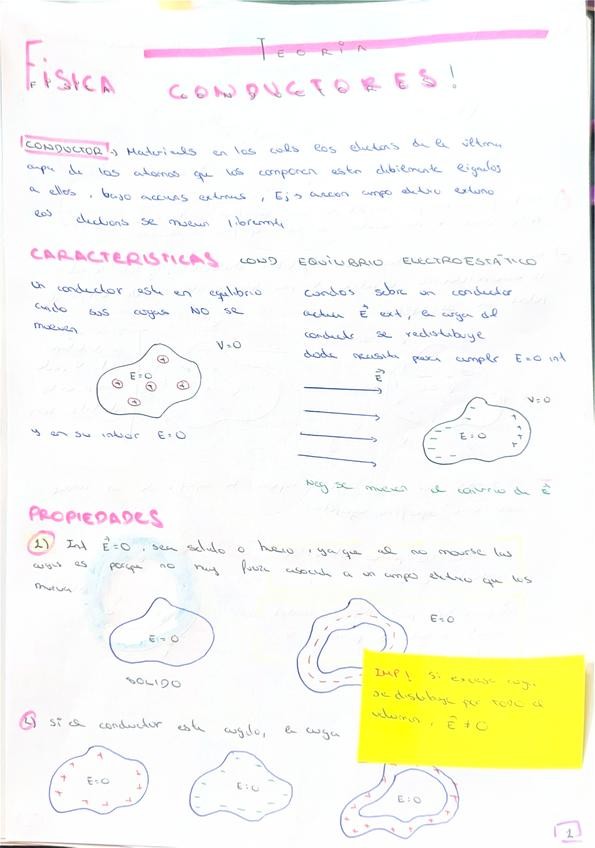 TEORÍA
FÍSICA CONDUCTORES!
CONDUCTOR → Materiales en los cuales los electrons de la última
capa de los átomos que los componen estan debilmente ligados
a ellos, bajo accions externas, Ej → accion campo electrico externo
los electrons se mueven libremente
CARACTERISTICAS COND EQUILIBRIO ELECTROESTÁTICO
Un conductor esta en equilibrio
cuando sus cargas NO se
mueven
V=0
E=0
+ + + + +
y en su interior E=0
Cuando sobre un conductor
actua E ext, la carga del
conductor se redistribuye
necesita para cumplir E=0 int
E
V=0
E=0
Neg se mueven al contrario de E
PROPIEDADES
1) Int E=0, sea solido o hueco, ya que al no moverse las
cargas es porque no hay fuerza asociada a un campo electrico que los
mueva
E=0
SOLIDO
E=0
IMP! Si exceso carga
se distribuye por TODO el
volumen, E≠0
2) Si el conductor esta cargado, la carga
E=0
E=0
E=0
1